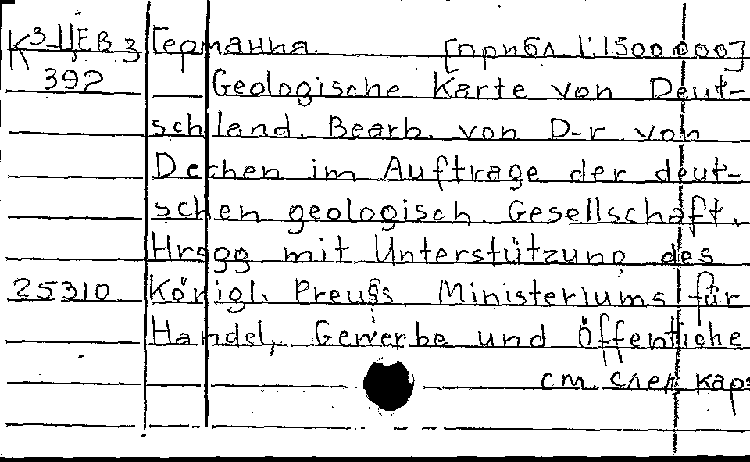 К 3-ЦЕВ 3 Германиа [прибл 1:1500 000]
392 Geologische Karte von Deut-
schland. Bearb. von D-r von
Dechen im Auftrage der deut-
schen geologisch Gesellschaft.
Hrsgg mit Unterstützung des
25310 Königl. Preuss Ministeriums für
Handel, Gewerbe und Öffentliche
см. след карт